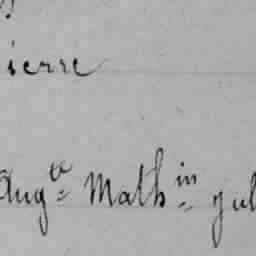 ierre
Augte Mathin jul